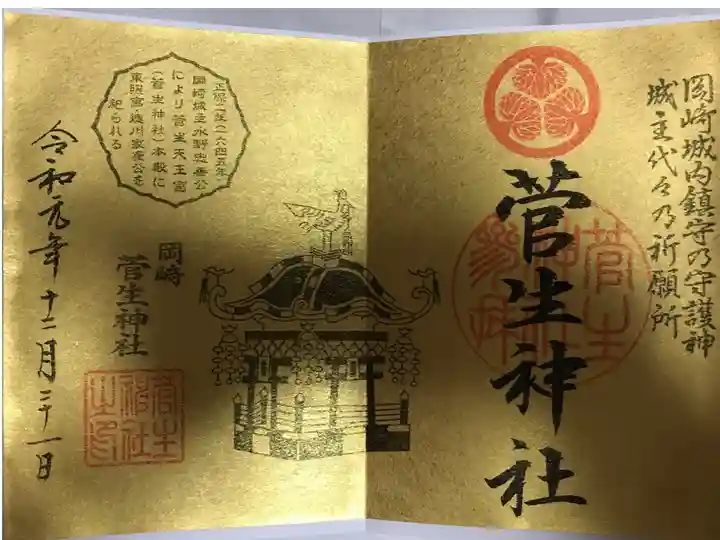 岡崎城内鎮守乃守護神
城主代々乃祈願所
菅生神社
正保二年(一六四五年)
岡崎城主水野忠善公
により菅生天王宮
(菅生神社)本殿に
東照宮徳川家康公を
祀られる
岡崎
菅生神社
菅生
神社
之印
令和元年十二月二十一日